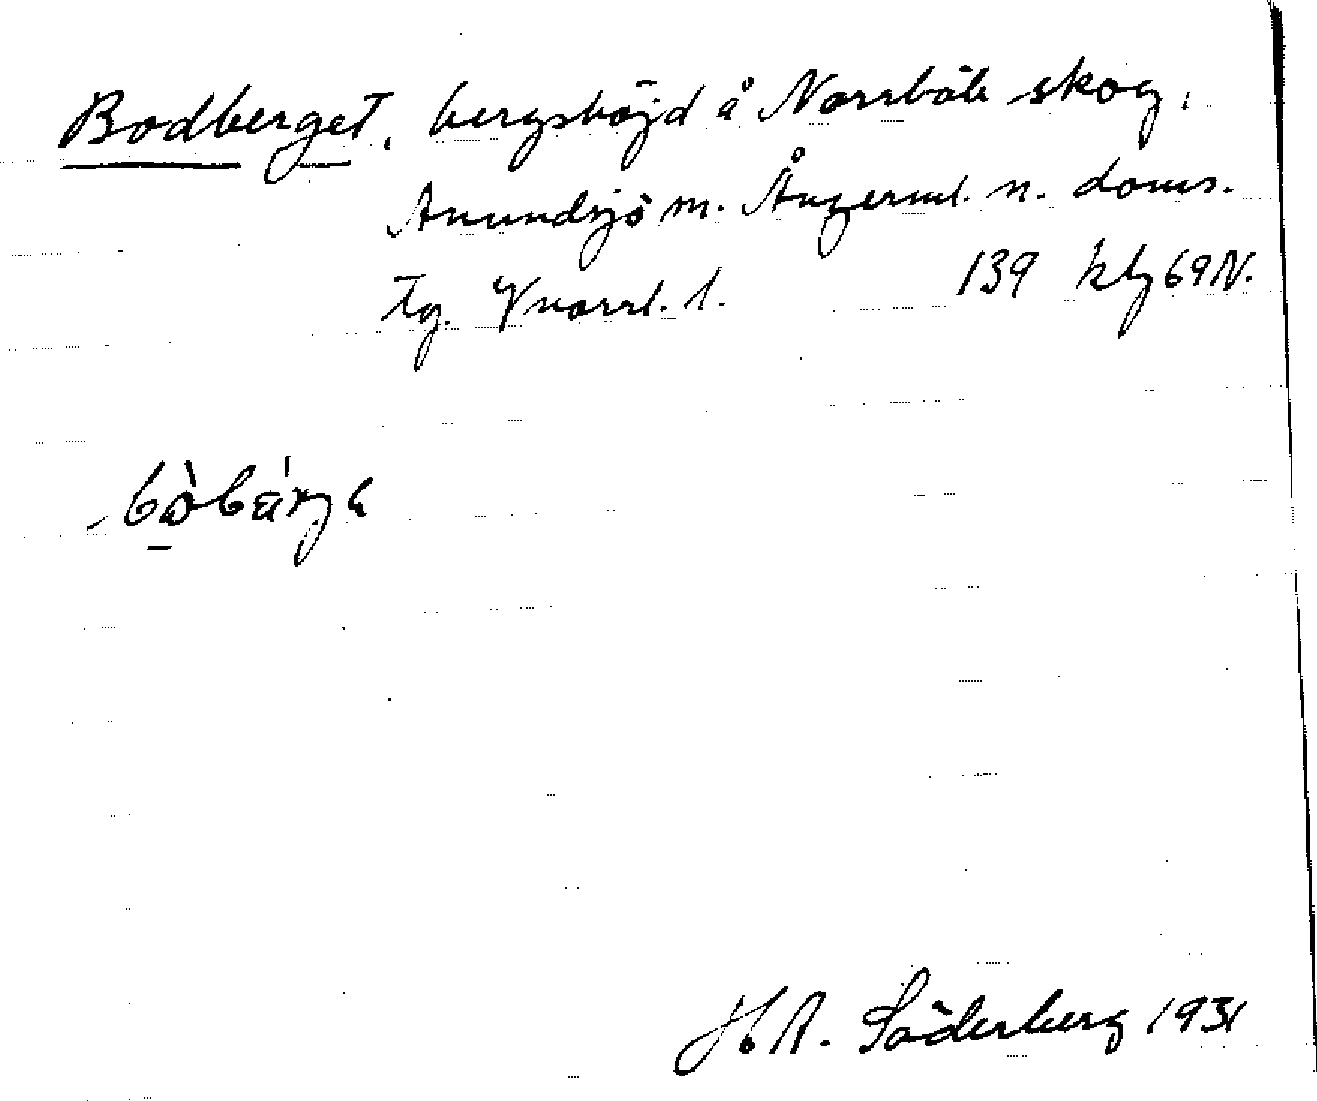 Bodberget, bergshöjd å Norrböle skog,
Anundsjö m. Ångerml. n. doms.
tg. Vnorrl. l. 139 kbg 69 N.
H. A. Söderberg 1931